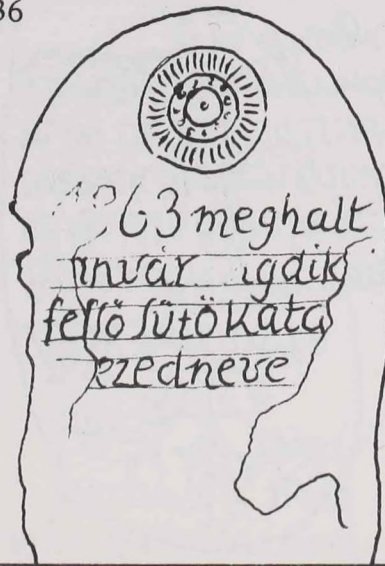 36
1863 meghalt
invár igdik
felső sütö Kata
ezedneve